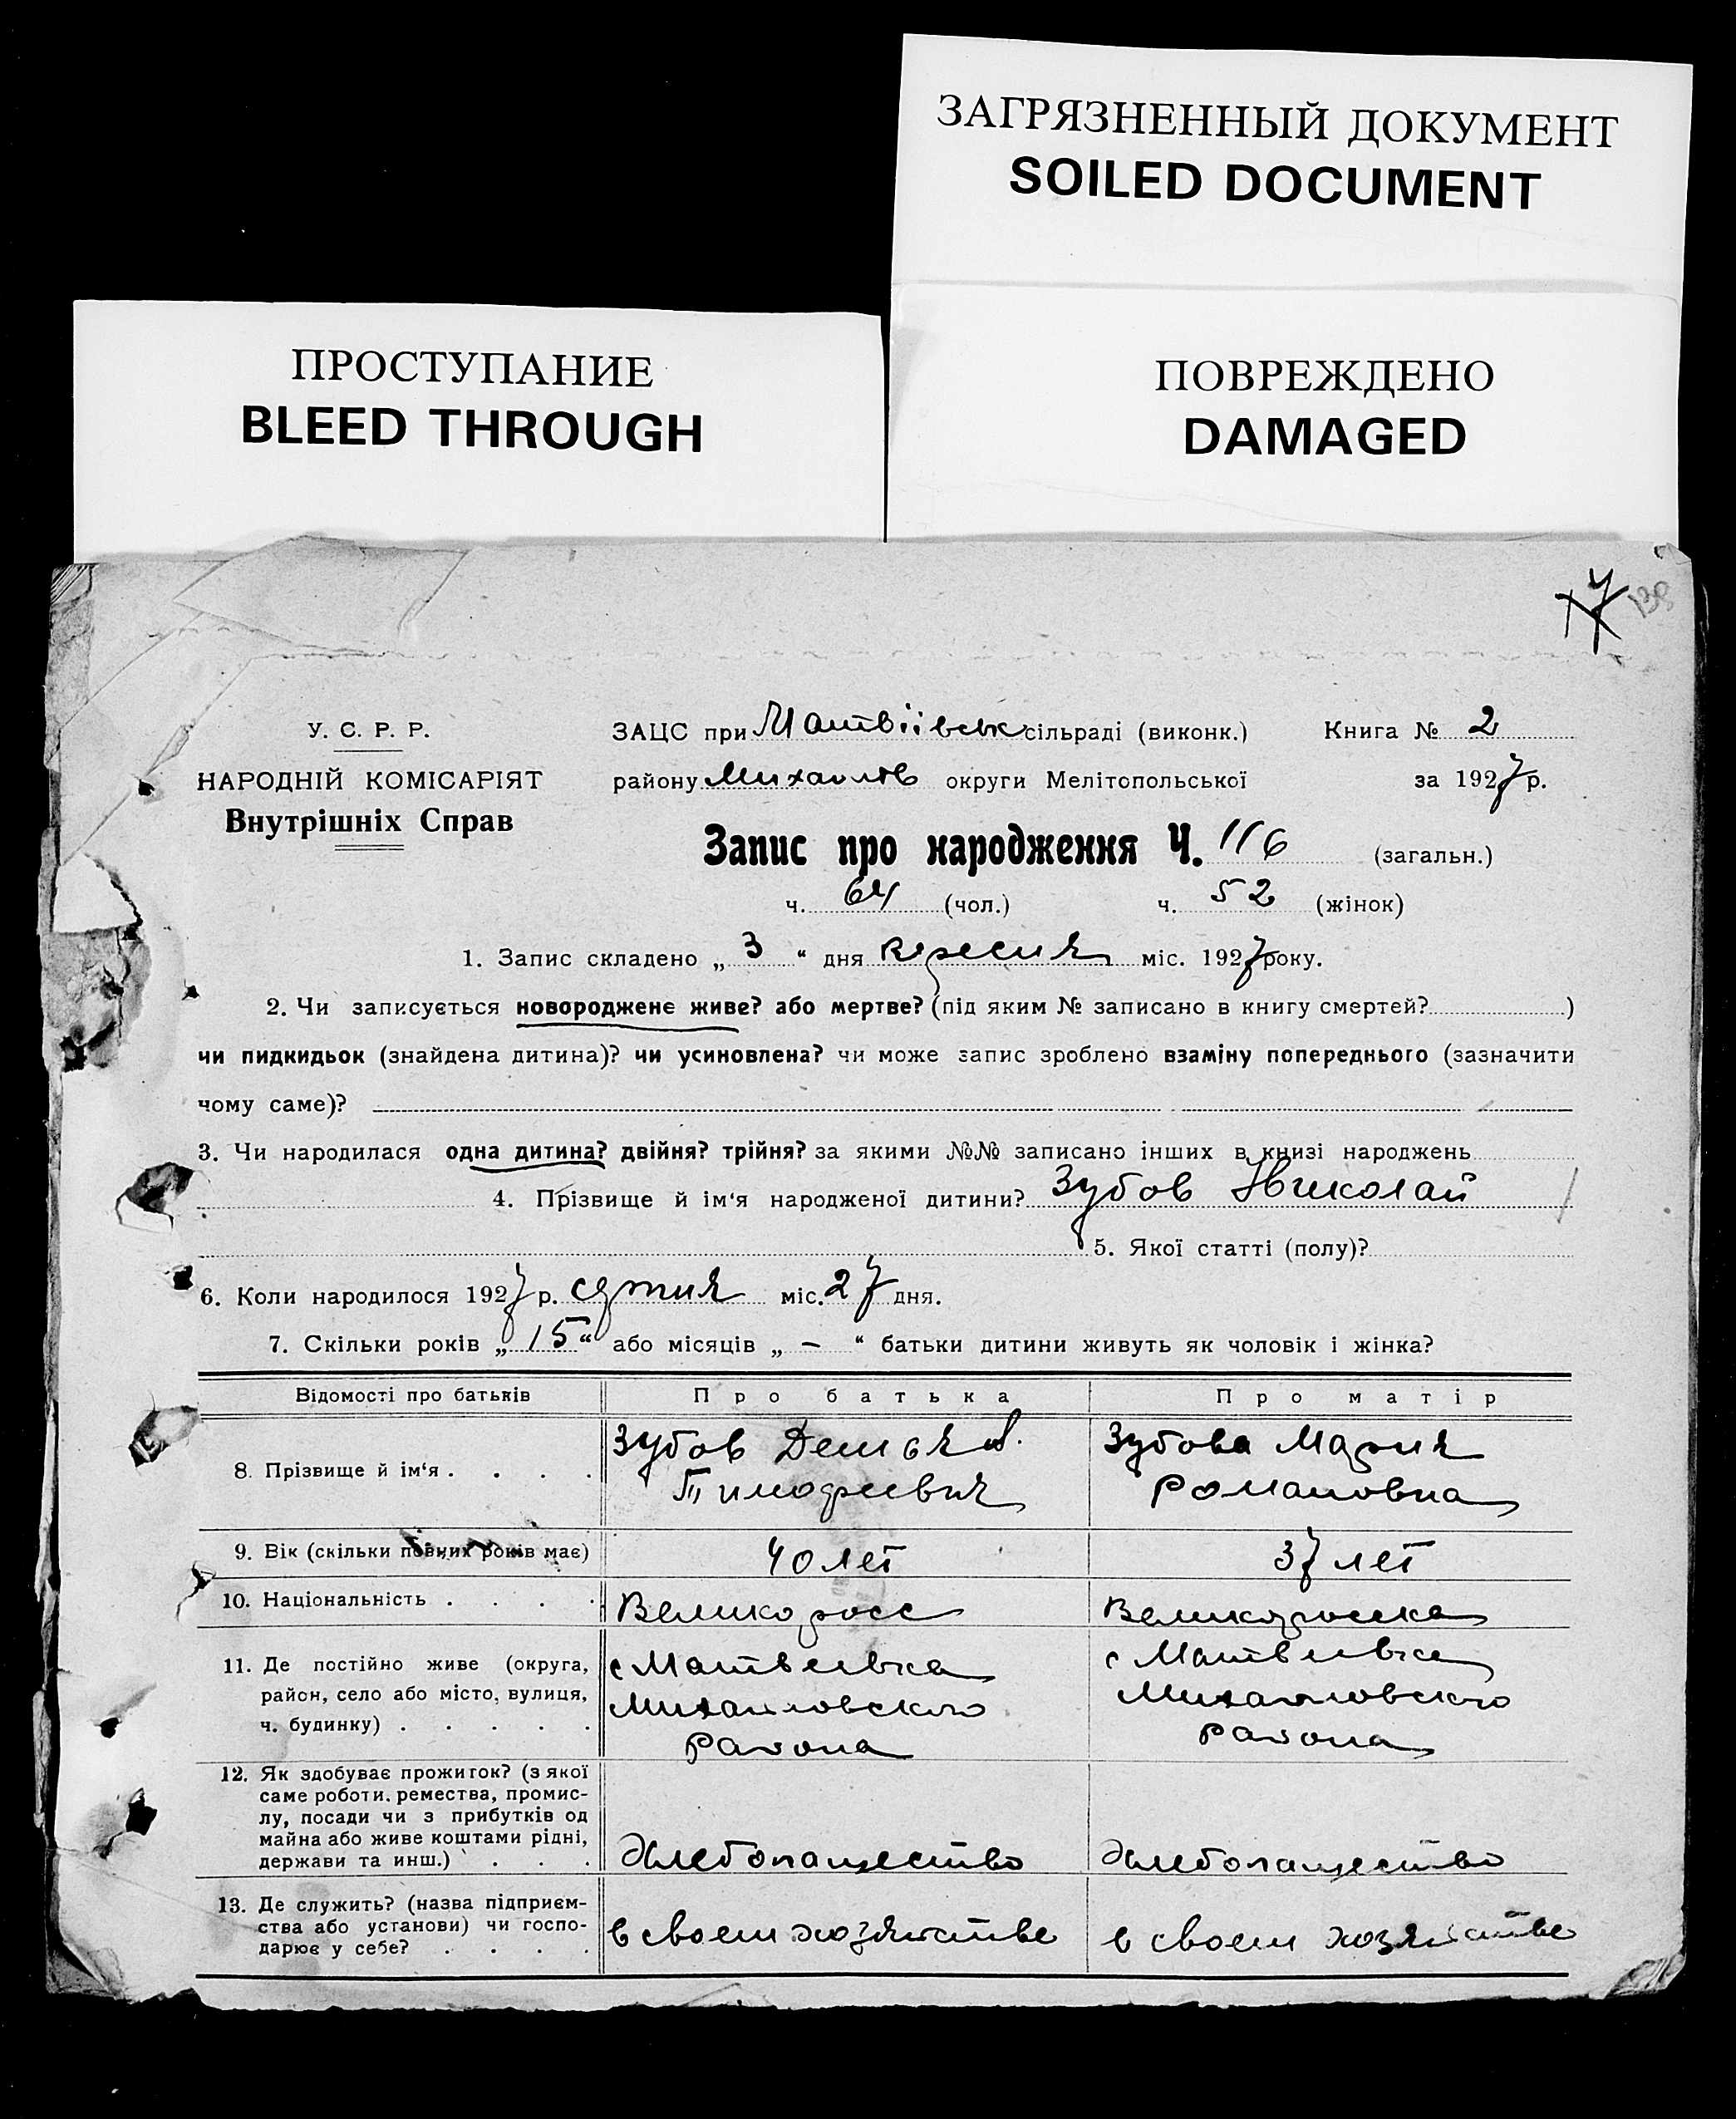 ЗАГРЯЗНЕННЫЙ ДОКУМЕНТ
SOILED DOCUMENT
ПРОСТУПАНИЕ
BLEED THROUGH
ПОВРЕЖДЕНО
DAMAGED
У. С. Р. Р.
НАРОДНІЙ КОМІСАРІЯТ
Внутрішніх Справ
ЗАЦС при Матвіївськ сільраді (виконк.) Книга № 2
району Михайлов округи Мелітопольської за 1927 р.
Запис про народження Ч. 116 (загальн.)
ч. 64 (чол.) ч. 52 (жінок)
1. Запис складено „ 3 “ дня вересня міс. 1927 року.
2. Чи записується новороджене живе? або мертве? (під яким № записано в книгу смертей? )
чи пидкидьок (знайдена дитина)? чи усиновлена? чи може запис зроблено взаміну попереднього (зазначити
чому саме)?
3. Чи народилася одна дитина? двійня? трійня? за якими №№ записано інших в книзі народжень
4. Прізвище й ім'я народженої дитини? Зубов Николай
5. Якої статті (полу)?
6. Коли народилося 1927 р. серпня міс. 27 дня.
7. Скільки років „ 15 “ або місяців „ — “ батьки дитини живуть як чоловік і жінка?
Відомості про батьків Про батька Про матір
8. Прізвище й ім'я . . . . Зубов Демьян Тимофеевич Зубова Мария Романовна
9. Вік (скільки повних років має) 40 лет 37 лет
10. Національність . . . . Великоросс Великоросска
11. Де постійно живе (округа,
район, село або місто, вулиця,
ч. будинку) . . . . .
с Матвеевка
Михайловского
Района
с Матвеевка
Михайловского
Района
12. Як здобуває прожиток? (з якої
саме роботи. ремества, промис-
лу, посади чи з прибутків од
майна або живе коштами рідні,
держави та инш.) . . .
Хлебопашество Хлебопашество
13. Де служить? (назва підприєм-
ства або установи) чи госпо-
дарює у себе? . . . .
в своем хозяйстве в своем хозяйстве